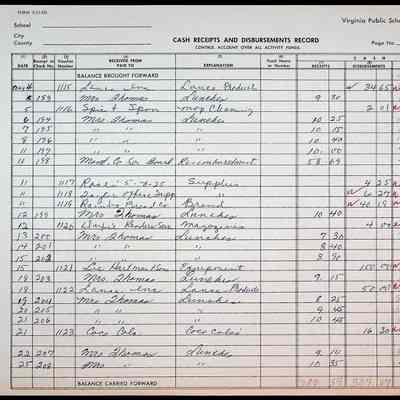 School
Virginia Public Scho
City
County
CASH RECEIPTS AND DISBURSEMENTS RECORD
CONTINUE ACCOUNT OVER ALL ACTIVITY FUNDS.
Page No.
(1) (2) (3) (4) (5) (6)
CASH
DATE Receipt or Check No. Voucher RECEIVED FROM PAID TO EXPLANATION Fund Name or Number RECEIPTS DISBURSEMENTS
BALANCE BROUGHT FORWARD
1115 Lance Inc Lance Products 34 65
193 Mrs Thomas Lunches 9 30
5 1116 Spic & Span mop Cleaning 2 01
6 194 Mrs Thomas Lunches 10 25
7 195 " " " 10 15
8 196 " " " 10 40
11 197 " " " 10 00
11 198 Board Reimbursement 58 69
11 1117 Supplies 4 25
11 1118 6 27
11 1119 Bread Co Bread 40 19
12 199 Mrs Thomas Lunches 10 40
12 1120 Magazines 4 00
13 200 Mrs Thomas Lunches 7 30
14 201 " " " 8 40
15 202 " " " 8 90
15 1121 Equipment 150 00
18 203 Mrs. Thomas Lunches 9 15
18 1122 Lance Inc Lance Products 50 00
19 204 Mrs Thomas Lunches 8 25
20 205 " " " 9 45
21 206 " " " 10 45
21 1123 Coca Cola Coca Colas 16 30
22 207 Mrs Thomas Lunches 9 10
25 208 Mrs " " 10 35
BALANCE CARRIED FORWARD